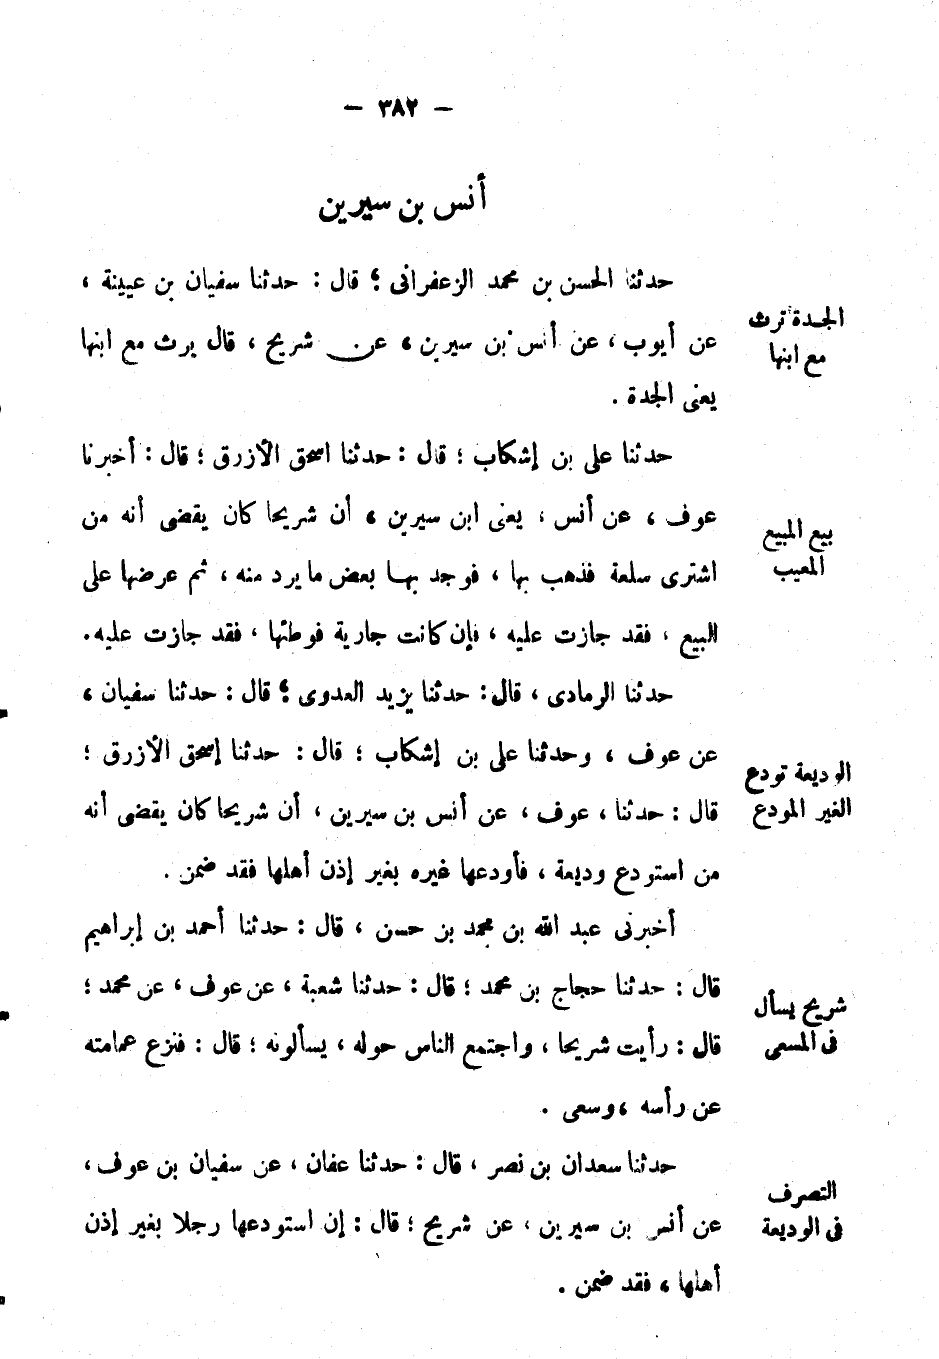 — ٣٨٢ —
أنس بن سيرين
حدثنا الحسن بن محمد الزعفرانى ؛ قال : حدثنا سفيان بن عيينة ،
عن أيوب ، عن أنس بن سيرين ، عن شريح ، قال يرث مع ابنها
يعنى الجدة .
الجدة ترث
مع ابنها
حدثنا على بن إشكاب ؛ قال : حدثنا اسحق الأزرق ؛ قال : أخبرنا
عوف ، عن أنس ، يعنى ابن سيرين ، أن شريحا كان يقضى أنه من
اشترى سلعة فذهب بها ، فوجد بها بعض ما يرد منه ، ثم عرضها على
البيع ، فقد جازت عليه ، فإن كانت جارية فوطئها ، فقد جازت عليه.
بيع المبيع
المعيب
حدثنا الرمادى ، قال : حدثنا يزيد العدوى ؛ قال : حدثنا سفيان ،
عن عوف ، وحدثنا على بن إشكاب ؛ قال : حدثنا إسحق الأزرق ؛
قال : حدثنا ، عوف ، عن أنس بن سيرين ، أن شريحا كان يقضى أنه
من استودع وديعة ، فأودعها غيره بغير إذن أهلها فقد ضمن .
الوديعة تودع
الغير المودع
أخبرنى عبد الله بن محمد بن حسن ، قال : حدثنا أحمد بن إبراهيم
قال : حدثنا حجاج بن محمد ؛ قال : حدثنا شعبة ، عن عوف ، عن محمد ؛
قال : رأيت شريحا ، واجتمع الناس حوله ، يسألونه ؛ قال : فنزع عمامته
عن رأسه ، وسعى .
شريح يسأل
فى المسعى
حدثنا سعدان بن نصر ، قال : حدثنا عفان ، عن سفيان بن عوف ،
عن أنس بن سيرين ، عن شريح ؛ قال : إن استودعها رجلا بغير إذن
أهلها ، فقد ضمن .
التصرف
فى الوديعة